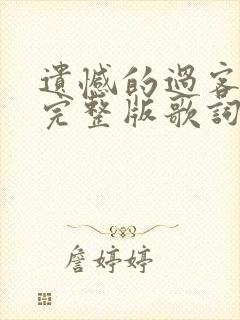 遺憾的過客
完整版歌詞
詹婷婷